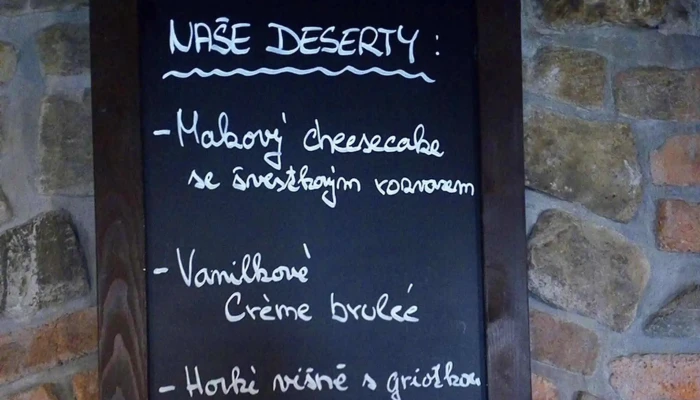 NAŠE DESERTY :
- Makový cheesecake
se švestkovým rozvarem
- Vanilkové
Crème bruleé
- Horké višně s griotkou